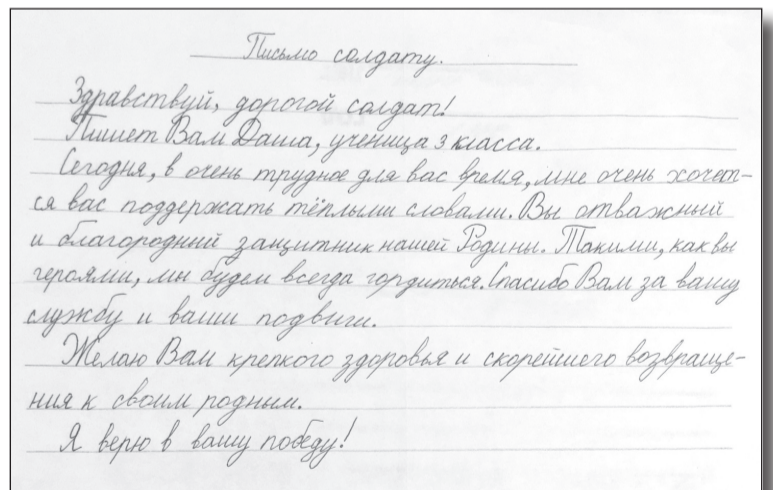 Письмо солдату.
Здравствуй, дорогой солдат!
Пишет Вам Даша, ученица 3 класса.
Сегодня, в очень трудное для вас время, мне очень хочет-
ся вас поддержать тёплыми словами. Вы отважный
и благородный защитник нашей Родины. Такими, как вы
героями, мы будем всегда гордиться. Спасибо Вам за вашу
службу и ваши подвиги.
Желаю Вам крепкого здоровья и скорейшего возвраще-
ния к своим родным.
Я верю в вашу победу!